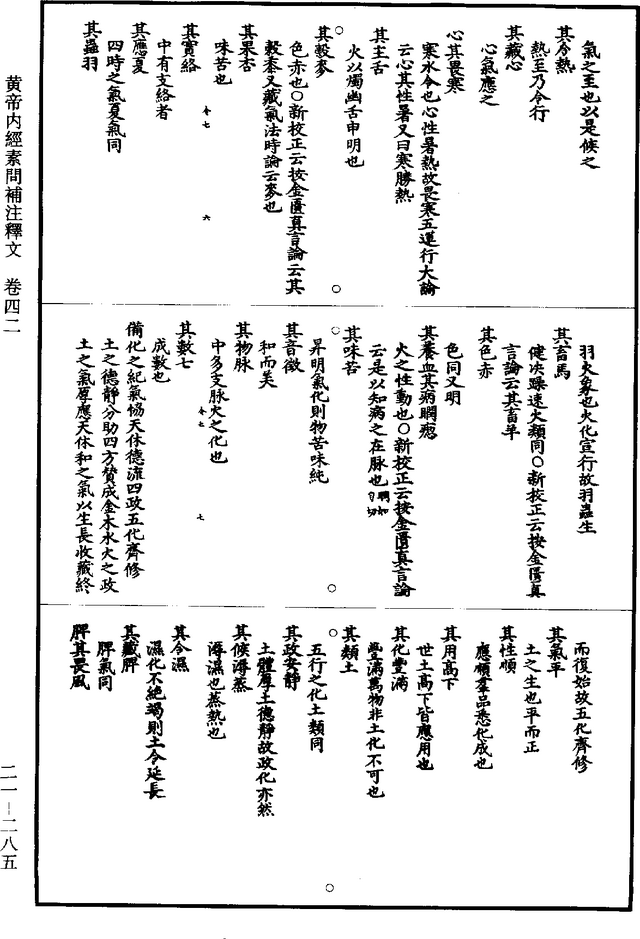 黄帝内經素問補注釋文　卷四二
二一—二八五
氣之至也以是候之
其令熱
熱至乃令行
其藏心
心氣應之
心其畏寒
寒水令也心性暑熱故畏寒五運行大論
云心其性暑又曰寒勝熱
其主舌
火以燭幽舌申明也
其穀麥
色赤也○新校正云按金匱真言論云其
穀黍又藏氣法時論云麥也
其果杏
味苦也
其實絡
中有支絡者
其應夏
四時之氣夏氣同
其蟲羽
令七
六
羽火象也火化宣行故羽蟲生
其畜馬
健決躁速火類同○新校正云按金匱真
言論云其畜羊
其色赤
色同又明
其養血其病瞤瘛
火之性動也○新校正云按金匱真言論
云是以知病之在脉也
其味苦
昇明氣化則物苦味純
其音徵
和而美
其物脉
中多支脉火之化也
其數七
成數也
備化之紀氣恊天休德流四政五化齊修
土之德靜分助四方賛成金木水火之政
土之氣厚應天休和之氣以生長收藏終
令七
七
而復始故五化齊修
其氣平
土之生也平而正
其性順
應順羣品悉化成也
其用高下
世土高下皆應用也
其化豐滿
豐滿萬物非土化不可也
其類土
五行之化土類同
其政安靜
土體厚土德靜故政化亦然
其候溽蒸
溽濕也蒸熱也
其令濕
濕化不絶竭則土令延長
其藏脾
脾氣同
脾其畏風